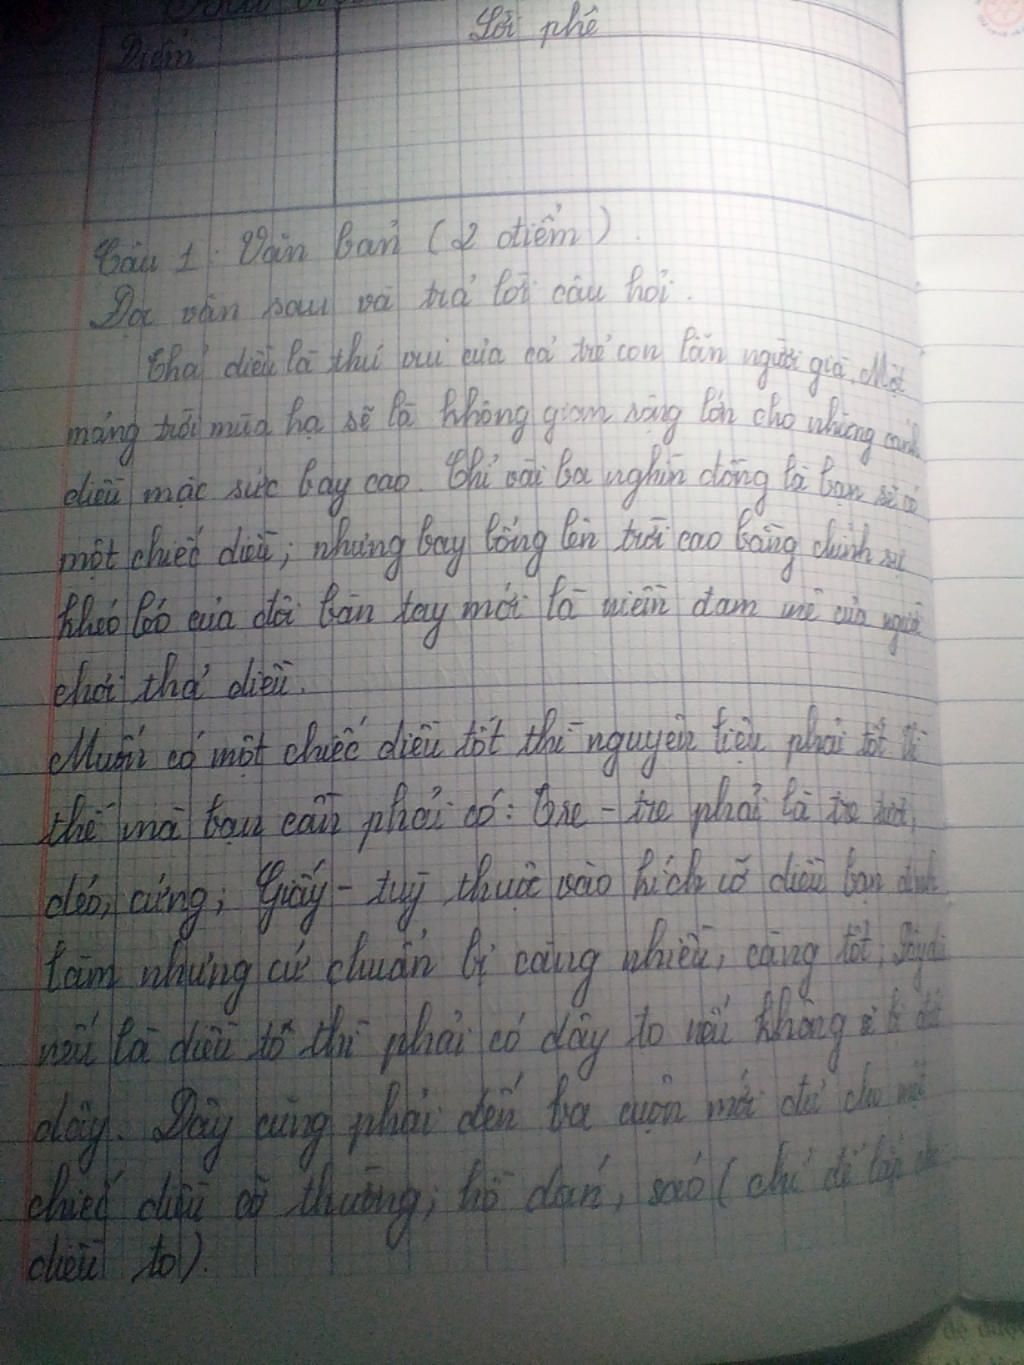 Điểm
Lời phê
Câu 1: Văn bản (2 điểm).
Đọc văn sau và trả lời câu hỏi.
Thả diều là thú vui của cả trẻ con lẫn người già. Một
mảng trời mùa hạ sẽ là không gian rộng lớn cho những cánh
diều mặc sức bay cao. Chỉ vài ba nghìn đồng là bạn sẽ có
một chiếc diều; nhưng bay bổng lên trời cao bằng chính sự
khéo léo của đôi bàn tay mới là niềm đam mê của người
chơi thả diều.
Muốn có một chiếc diều tốt thì nguyên liệu phải tốt. Vì
thế mà bạn cần phải có: Tre - tre phải là tre tươi,
dẻo, cứng; Giấy - tuỳ thuộc vào kích cỡ diều bạn định
làm nhưng cứ chuẩn bị càng nhiều, càng tốt;
nếu là diều to thì phải có dây to nếu không sẽ bị đứt
dây. Dây cũng phải đến ba cuộn mới đủ cho một
chiếc diều cỡ thường; hồ dán, sáo (chỉ để lắp cho
diều to).